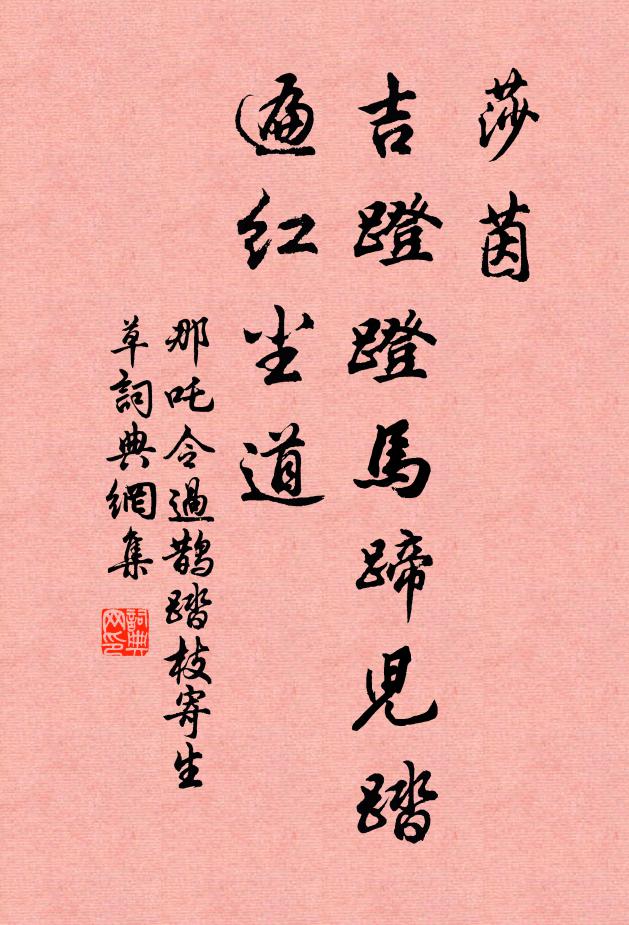 莎茵
吉蹬蹬馬蹄兒踏
遍红尘道
那吒令過鵲踏枝寄生
草詞典網集
詞典网印